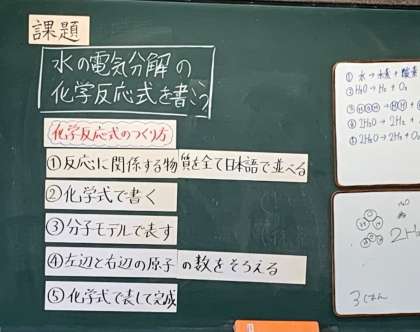 課題
水の電気分解の
化学反応式を書こう
化学反応式のつくり方
①反応に関係する物質を全て日本語で並べる
②化学式で書く
③分子モデルで表す
④左辺と右辺の原子の数をそろえる
⑤化学式で表して完成
① 水→水素+酸素
② H₂O → H₂ + O₂
⑤ 2H₂O→2H₂+O₂